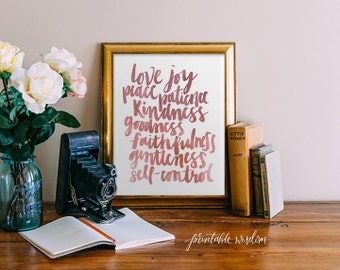 love joy
peace patience
kindness
goodness
faithfulness
gentleness
self-control
LITTLE
WOMEN
printable wisdom